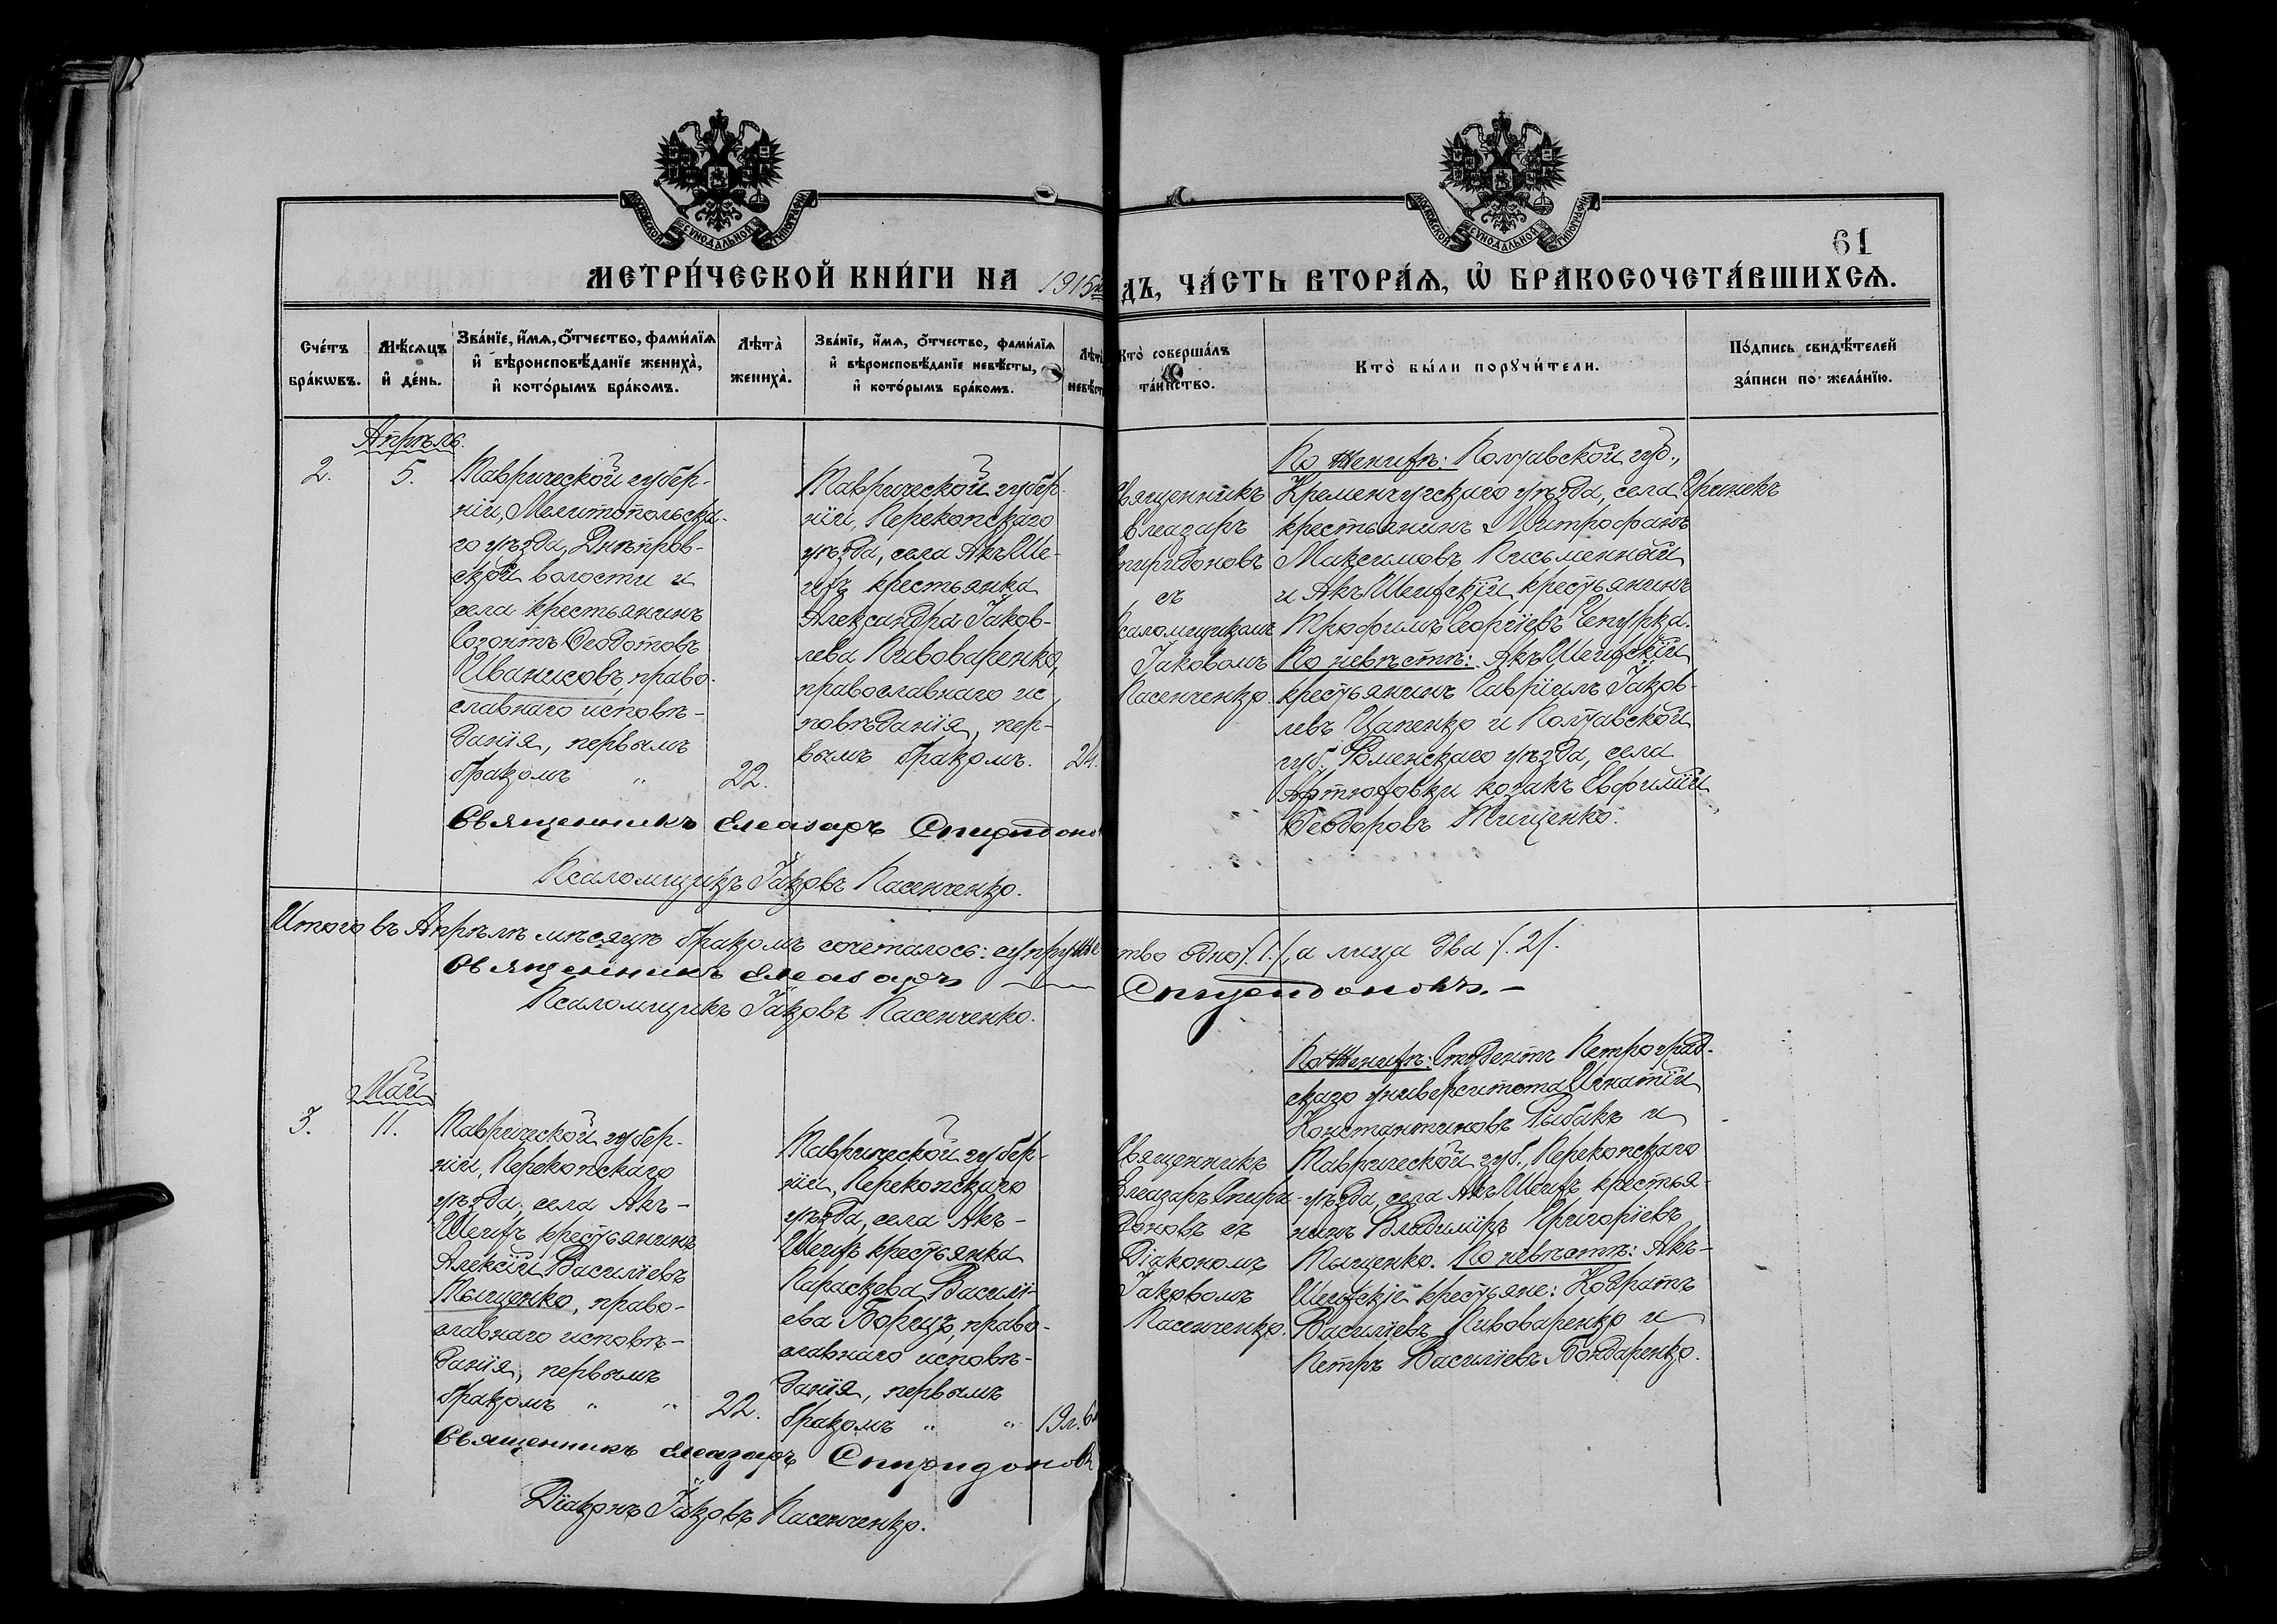 МОСКОВСКОЙ СѴНОДАЛЬНОЙ ТИПОГРАФІИ
МОСКОВСКОЙ СѴНОДАЛЬНОЙ ТИПОГРАФІИ
61
МЕТРИ́ЧЕСКОЙ КНИ́ГИ НА 1915
ДЪ, ЧА́СТЬ ВТОРА́Ѧ, Ѡ҆ БРАКОСОЧЕТА́ВШИХСѦ.
Сче́тъ бра́кѡвъ.
Мѣ́сѧцъ и҆ де́нь.
Зва́нїе, и҆́мѧ, ѻ҆́тчество, фами́лїѧ и҆ вѣроисповѣ́данїе жениха̀, и҆ кото́рымъ бра́комъ.
Лѣта̀ жениха̀.
Зва́нїе, и҆́мѧ, ѻ҆́тчество, фами́лїѧ и҆ вѣроисповѣ́данїе невѣ́сты, и҆ кото́рымъ бра́комъ.
Кто̀ соверша́лъ та́инство.
Кто̀ бы́ли порꙋчи́тели.
По́дпись свидѣ́телей за́писи по жела́нїю.
Апрѣль.
2.
5.
Таврической губер-
ніи, Мелитопольска-
го уѣзда, Днѣпров-
ской волости и
села крестьянинъ
Созонтъ Ѳеодотовъ
Иванисовъ, право-
славнаго исповѣ-
данія, первымъ
бракомъ "
22.
Таврической губер-
ніи, Перекопскаго
уѣзда, села Акъ Ше-
ихъ крестьянка
Александра Іаков-
лева Пивоваренко,
православнаго ис-
повѣданія, пер-
вымъ бракомъ.
24.
Священникъ
Елеазаръ
Спиридоновъ
съ
Псаломщикомъ
Іаковомъ
Пасенченко.
По женихѣ: Полтавской губ.,
Кременчугскаго уѣзда, села Гринекъ
крестьянинъ Митрофанъ
Максимовъ Письменный
и Акъ Шеихскій крестьянинъ
Трофимъ Георгіевъ Чепурка.
По невѣстѣ: Акъ Шеихскій
крестьянинъ Гавріилъ Іаков-
левъ Цапенко и Полтавской
губ. Роменскаго уѣзда, села
Артюховки козакъ Евфимій
Ѳеодоровъ Тищенко.
Священникъ Елеазаръ Спиридонов
Псаломщикъ Іаковъ Пасенченко.
Итого въ Апрѣлѣ мѣсяцѣ бракомъ сочеталось: супруже
ство одно /.1./, а лица два /.2/.
Священникъ Елеазаръ Спиридоновъ.
Псаломщикъ Іаковъ Пасенченко.
Май
3.
11.
Таврической губер-
ніи, Перекопскаго
уѣзда, села Акъ-
Шеихъ крестьянинъ
Алексій Василіевъ
Тыщенко, право-
славнаго исповѣ-
данія, первымъ
бракомъ " "
22.
Таврической губер-
ніи, Перекопскаго
уѣзда, села Акъ-
Шеихъ крестьянка
Параскева Василі-
ева Борщъ, право-
славнаго исповѣ-
данія, первымъ
бракомъ " "
19 л. 6
Священникъ
Елеазаръ Спири-
доновъ съ
Діакономъ
Іаковомъ
Пасенченко.
По женихѣ: Студентъ Петроград-
скаго университета Игнатій
Константиновъ Рыбакъ и
Таврической губ., Перекопскаго
уѣзда, села Акъ Шеихъ крестья-
нинъ Владиміръ Григоріевъ
Тыщенко. По невѣстѣ: Акъ-
Шеихскіе крестьяне: Кодратъ
Василіевъ Пивоваренко и
Петръ Василіевъ Бондаренко.
Священникъ Елеазаръ Спиридонов
Діаконъ Іаковъ Пасенченко.